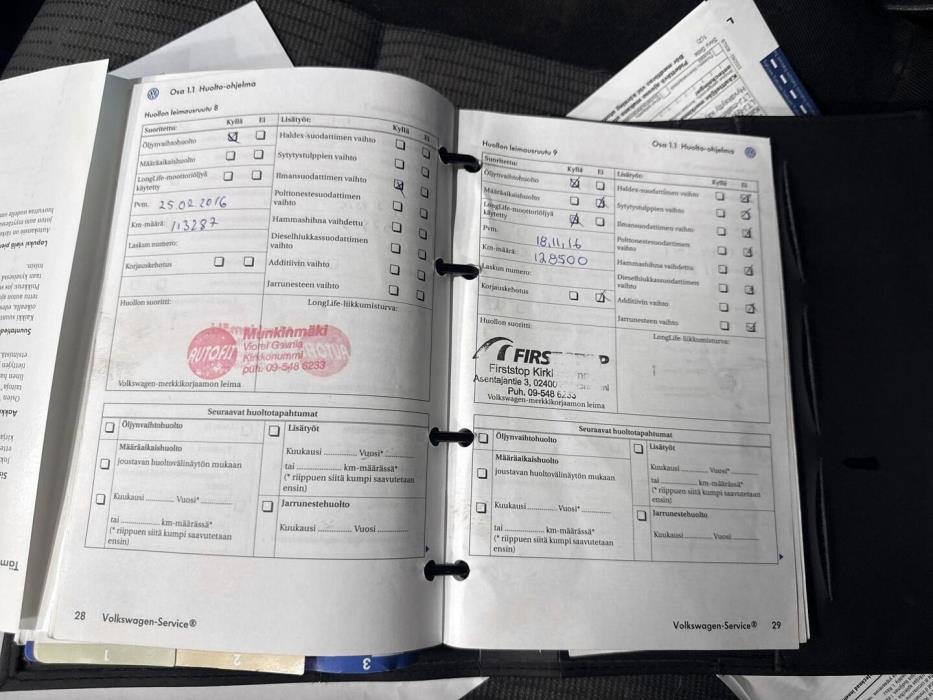 Osa 1.1 Huolto-ohjelma
Huollon leimausruutu 8
Suoritettu: Kyllä Ei
Öljynvaihtohuolto
Määräaikaishuolto
LongLife-moottoriöljyä
käytetty
Pvm. 25.02.2016
Km-määrä: 113287
Laskun numero:
Korjauskehotus
Lisätyöt: Kyllä Ei
Haldex-suodattimen vaihto
Sytytystulppien vaihto
Ilmansuodattimen vaihto
Polttonestesuodattimen
vaihto
Hammashihna vaihdettu
Dieselhiukkassuodattimen
vaihto
Additiivin vaihto
Jarrunesteen vaihto
Huollon suoritti:
LongLife-liikkumisturva:
AUTOFIT
Munkinmäki
Kirkkonummi
puh. 09-548 6233
Volkswagen-merkkikorjaamon leima
Seuraavat huoltotapahtumat
Öljynvaihtohuolto
Määräaikaishuolto
joustavan huoltovälinäytön mukaan
Kuukausi ............ Vuosi* .........
tai ............... km-määrässä*
(* riippuen siitä kumpi saavutetaan
ensin)
Lisätyöt
Kuukausi ............ Vuosi* .........
tai ............... km-määrässä*
(* riippuen siitä kumpi saavutetaan
ensin)
Jarrunestehuolto
Kuukausi ............ Vuosi ..........
28 Volkswagen-Service®
1
2
3
Osa 1.1 Huolto-ohjelma
Huollon leimausruutu 9
Suoritettu: Kyllä Ei
Öljynvaihtohuolto
Määräaikaishuolto
LongLife-moottoriöljyä
käytetty
Pvm. 18.11.16
Km-määrä: 128500
Laskun numero:
Korjauskehotus
Lisätyöt: Kyllä Ei
Haldex-suodattimen vaihto
Sytytystulppien vaihto
Ilmansuodattimen vaihto
Polttonestesuodattimen
vaihto
Hammashihna vaihdettu
Dieselhiukkassuodattimen
vaihto
Additiivin vaihto
Jarrunesteen vaihto
Huollon suoritti:
LongLife-liikkumisturva:
FIRS
Firststop Kirk
Asentajantie 3, 02400
Puh. 09-548 6233
Volkswagen-merkkikorjaamon leima
Seuraavat huoltotapahtumat
Öljynvaihtohuolto
Määräaikaishuolto
joustavan huoltovälinäytön mukaan
Kuukausi ............ Vuosi* .........
tai ............... km-määrässä*
(* riippuen siitä kumpi saavutetaan
ensin)
Lisätyöt
Kuukausi ............ Vuosi* .........
tai ............... km-määrässä*
(* riippuen siitä kumpi saavutetaan
ensin)
Jarrunestehuolto
Kuukausi ............ Vuosi ..........
Volkswagen-Service® 29